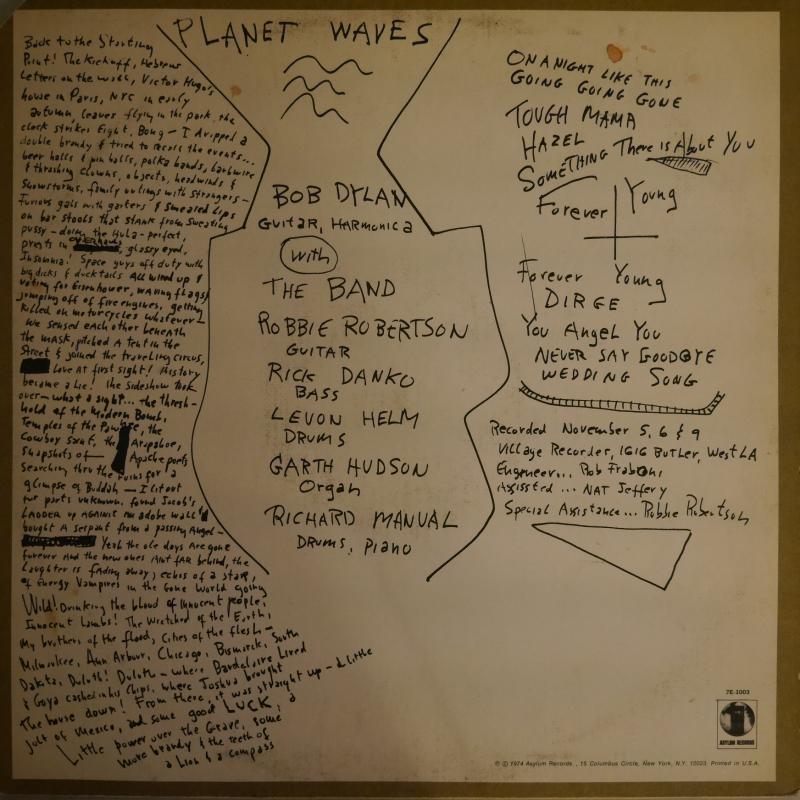 PLANET WAVES
Back to the Starting
Point! The Kickoff, Hebrew
Letters on the wall, Victor Hugo's
house in Paris, NYC in early
autumn, leaves flying in the park, the
clock strikes Eight, Bong - I dropped a
double brandy & tried to recall the events...
beer halls & pin balls, polka bands, barbwire
& thrashing clowns, objects, headwinds &
snowstorms, family outings with strangers -
Furious gals with garters & smeared lips
on bar stools that stank from sweating
pussy - doing the Hula - perfect,
priests in overhauls, glassy eyed,
Insomnia! Space guys off duty with
big dicks & ducktails All wired up &
voting for Eisenhower, waving flags &
jumping off of fire engines, getting
killed on motorcycles whatever -
We sensed each other beneath
the mask, pitched a tent in the
Street & joined the traveling circus,
Love at first sight! History
became a lie! the sideshow took
over - what a sight... the thresh-
hold of the Modern Bomb,
Temples of the Pawnee, the
Cowboy saint, the Arapahoe,
snapshots of - Apache poets
searching thru the ruins for a
glimpse of Buddah - I lit out
for parts unknown, found Jacob's
LADDER up AGAINST an adobe wall &
bought A serpent from a passing Angel -
Yeah the ole days Are gone
forever And the new ones Aint fAR behind, the
Laughter is fading away, echos of a staR,
of Energy Vampires in the Gone World going
Wild! Drinking the blood of innocent people,
Innocent Lambs! The Wretched of the Earth,
My brothers of the flood, Cities of the flesh -
Milwaukee, Ann Arbour, Chicago, Bismarck, South
Dakota, Duluth! Duluth - where Baudelaire Lived
& Goya cashed in his Chips, where Joshua brought
The house down! From there, it was straight up - a little
jolt of Mexico, and some good LUCK, a
Little power over the Grave, some
more brandy & the teeth of
a Lion & a compass
BOB DYLAN
GUITAR, HARMONICA
with
THE BAND
ROBBIE ROBERTSON
GUITAR
RICK DANKO
BASS
LEVON HELM
DRUMS
GARTH HUDSON
Organ
RICHARD MANUAL
DRUMS, PIANO
ON A NIGHT LIKE THIS
GOING GOING GONE
TOUGH MAMA
HAZEL
SOMETHING There is About You
Forever Young
Forever Young
DIRGE
You Angel You
NEVER SAY GOODBYE
WEDDING SONG
Recorded November 5, 6 & 9
Village Recorder, 1616 BUTLER, West LA
Engineer... Rob Fraboni
Assisted ... NAT Jeffery
Special Assistance... Robbie Robertson
7E-1003
ASYLUM RECORDS
℗ © 1974 Asylum Records, 15 Columbus Circle, New York, N.Y. 10023. Printed in U.S.A.